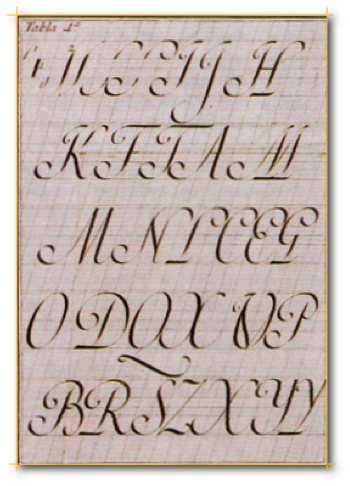 Tabla 4ª
I J H
K F T A M
M N L C E G
O D Q X V P
B R S Z X Y Y